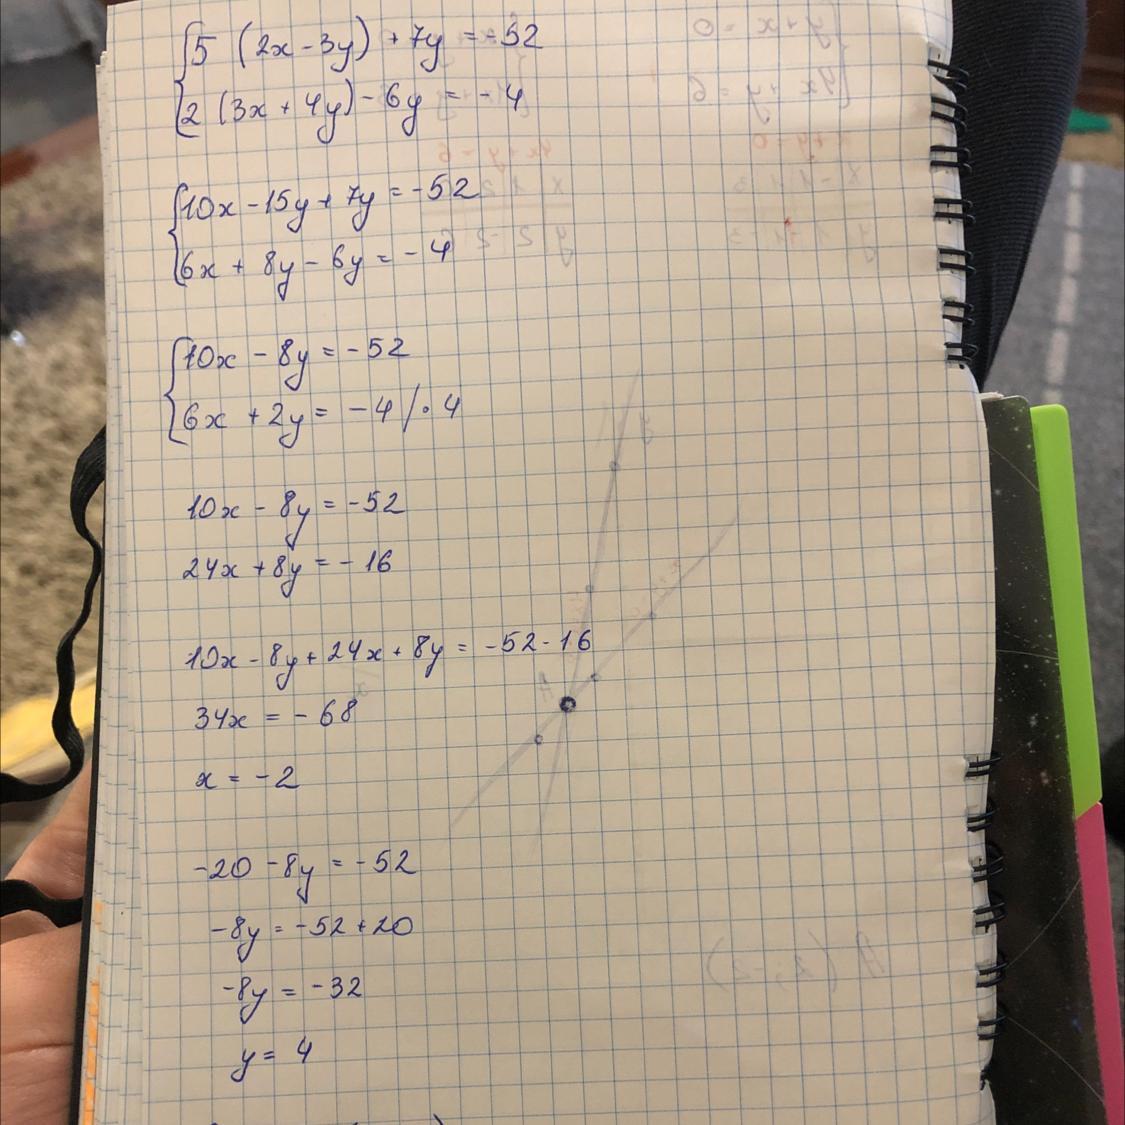 5 (2x - 3y) + 7y = -52
2 (3x + 4y) - 6y = -4
10x - 15y + 7y = -52
6x + 8y - 6y = -4
10x - 8y = -52
6x + 2y = -4 / · 4
10x - 8y = -52
24x + 8y = -16
10x - 8y + 24x + 8y = -52 - 16
34x = -68
x = -2
-20 - 8y = -52
-8y = -52 + 20
-8y = -32
y = 4